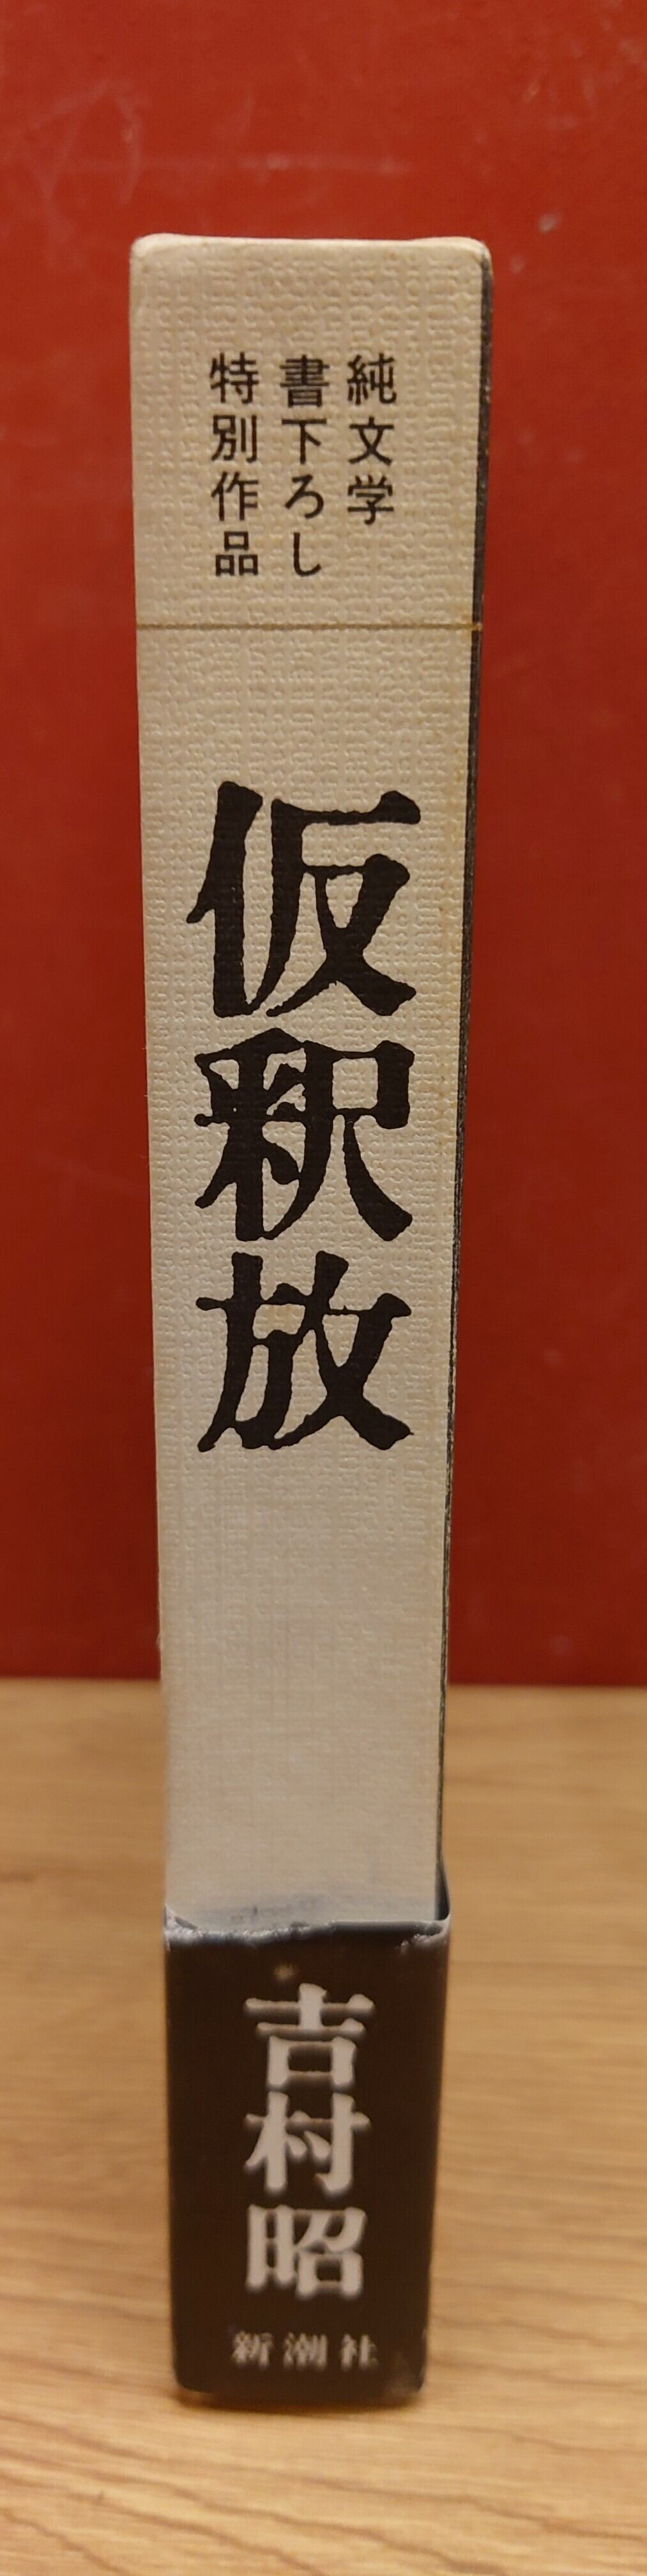 純文学
書下ろし
特別作品
仮釈放
吉村昭
新潮社